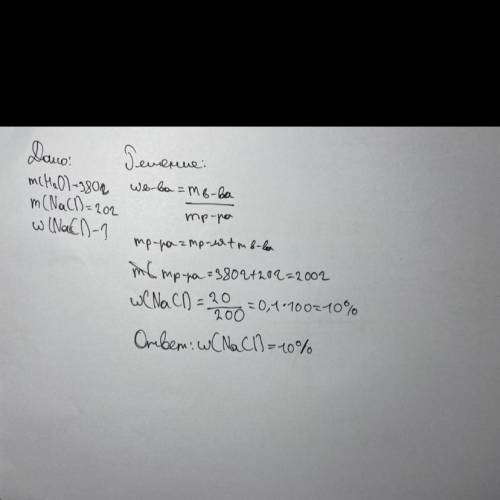 Дано:
m(H₂O)=380г
m(NaCl)=20г
w(NaCl)-?
Решение:
wв-ва = mв-ва / mр-ра
mр-ра=mр-ля+mв-ва
mр-ра=380г+20г=200г
w(NaCl)=20/200=0,1·100=10%
Ответ: w(NaCl)=10%